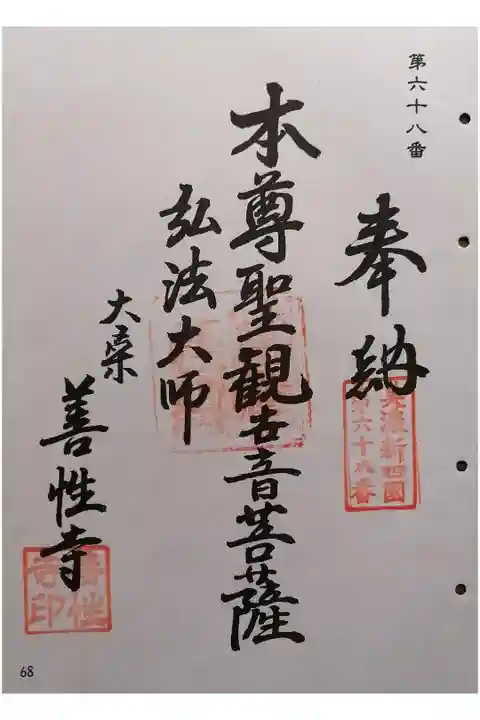 第六十八番
奉納
美濃新四國
第六十八番
本尊聖観世音菩薩
弘法大師
大桑
善性寺
善性
寺印
68